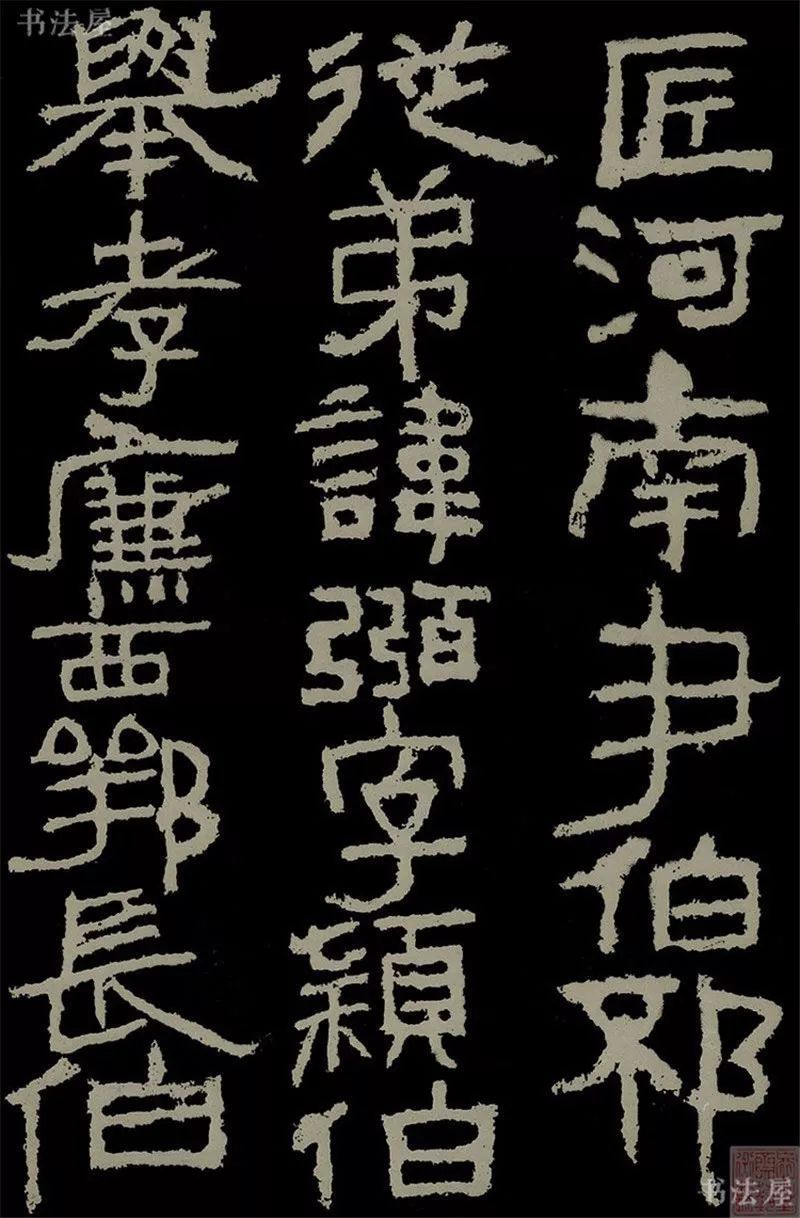 书法屋
匠河南尹伯邳
從弟諱弼字穎伯
舉孝廉西鄂長伯
书法屋